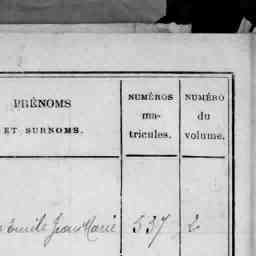 PRÉNOMS
ET SURNOMS.
NUMÉROS
ma-
tricules.
NUMÉRO
du
volume.
Emile Jean Marie 537 2